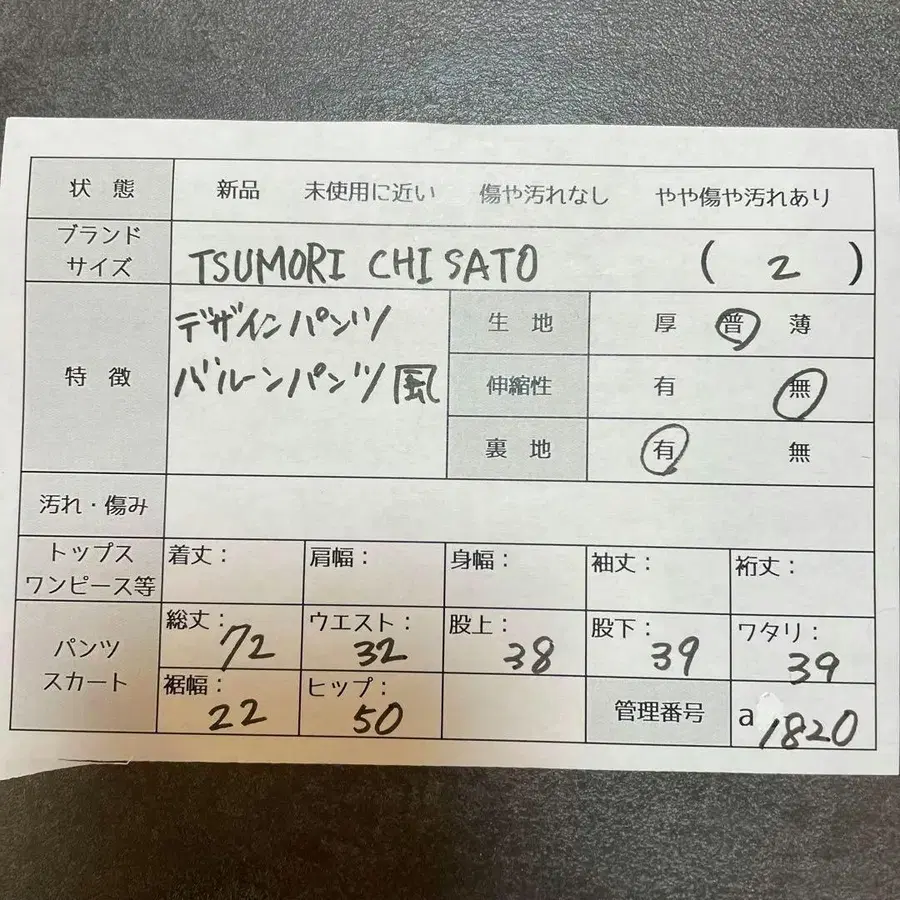 状態 新品 未使用に近い 傷や汚れなし やや傷や汚れあり
ブランド
サイズ TSUMORI CHISATO ( 2 )
特徴 デザインパンツ
バルーンパンツ風
生地 厚 普 薄
伸縮性 有 無
裏地 有 無
汚れ・傷み
トップス
ワンピース等 着丈: 肩幅: 身幅: 袖丈: 裄丈:
パンツ
スカート 総丈: 72 ウエスト: 32 股上: 38 股下: 39 ワタリ: 39
裾幅: 22 ヒップ: 50 管理番号 a 1820